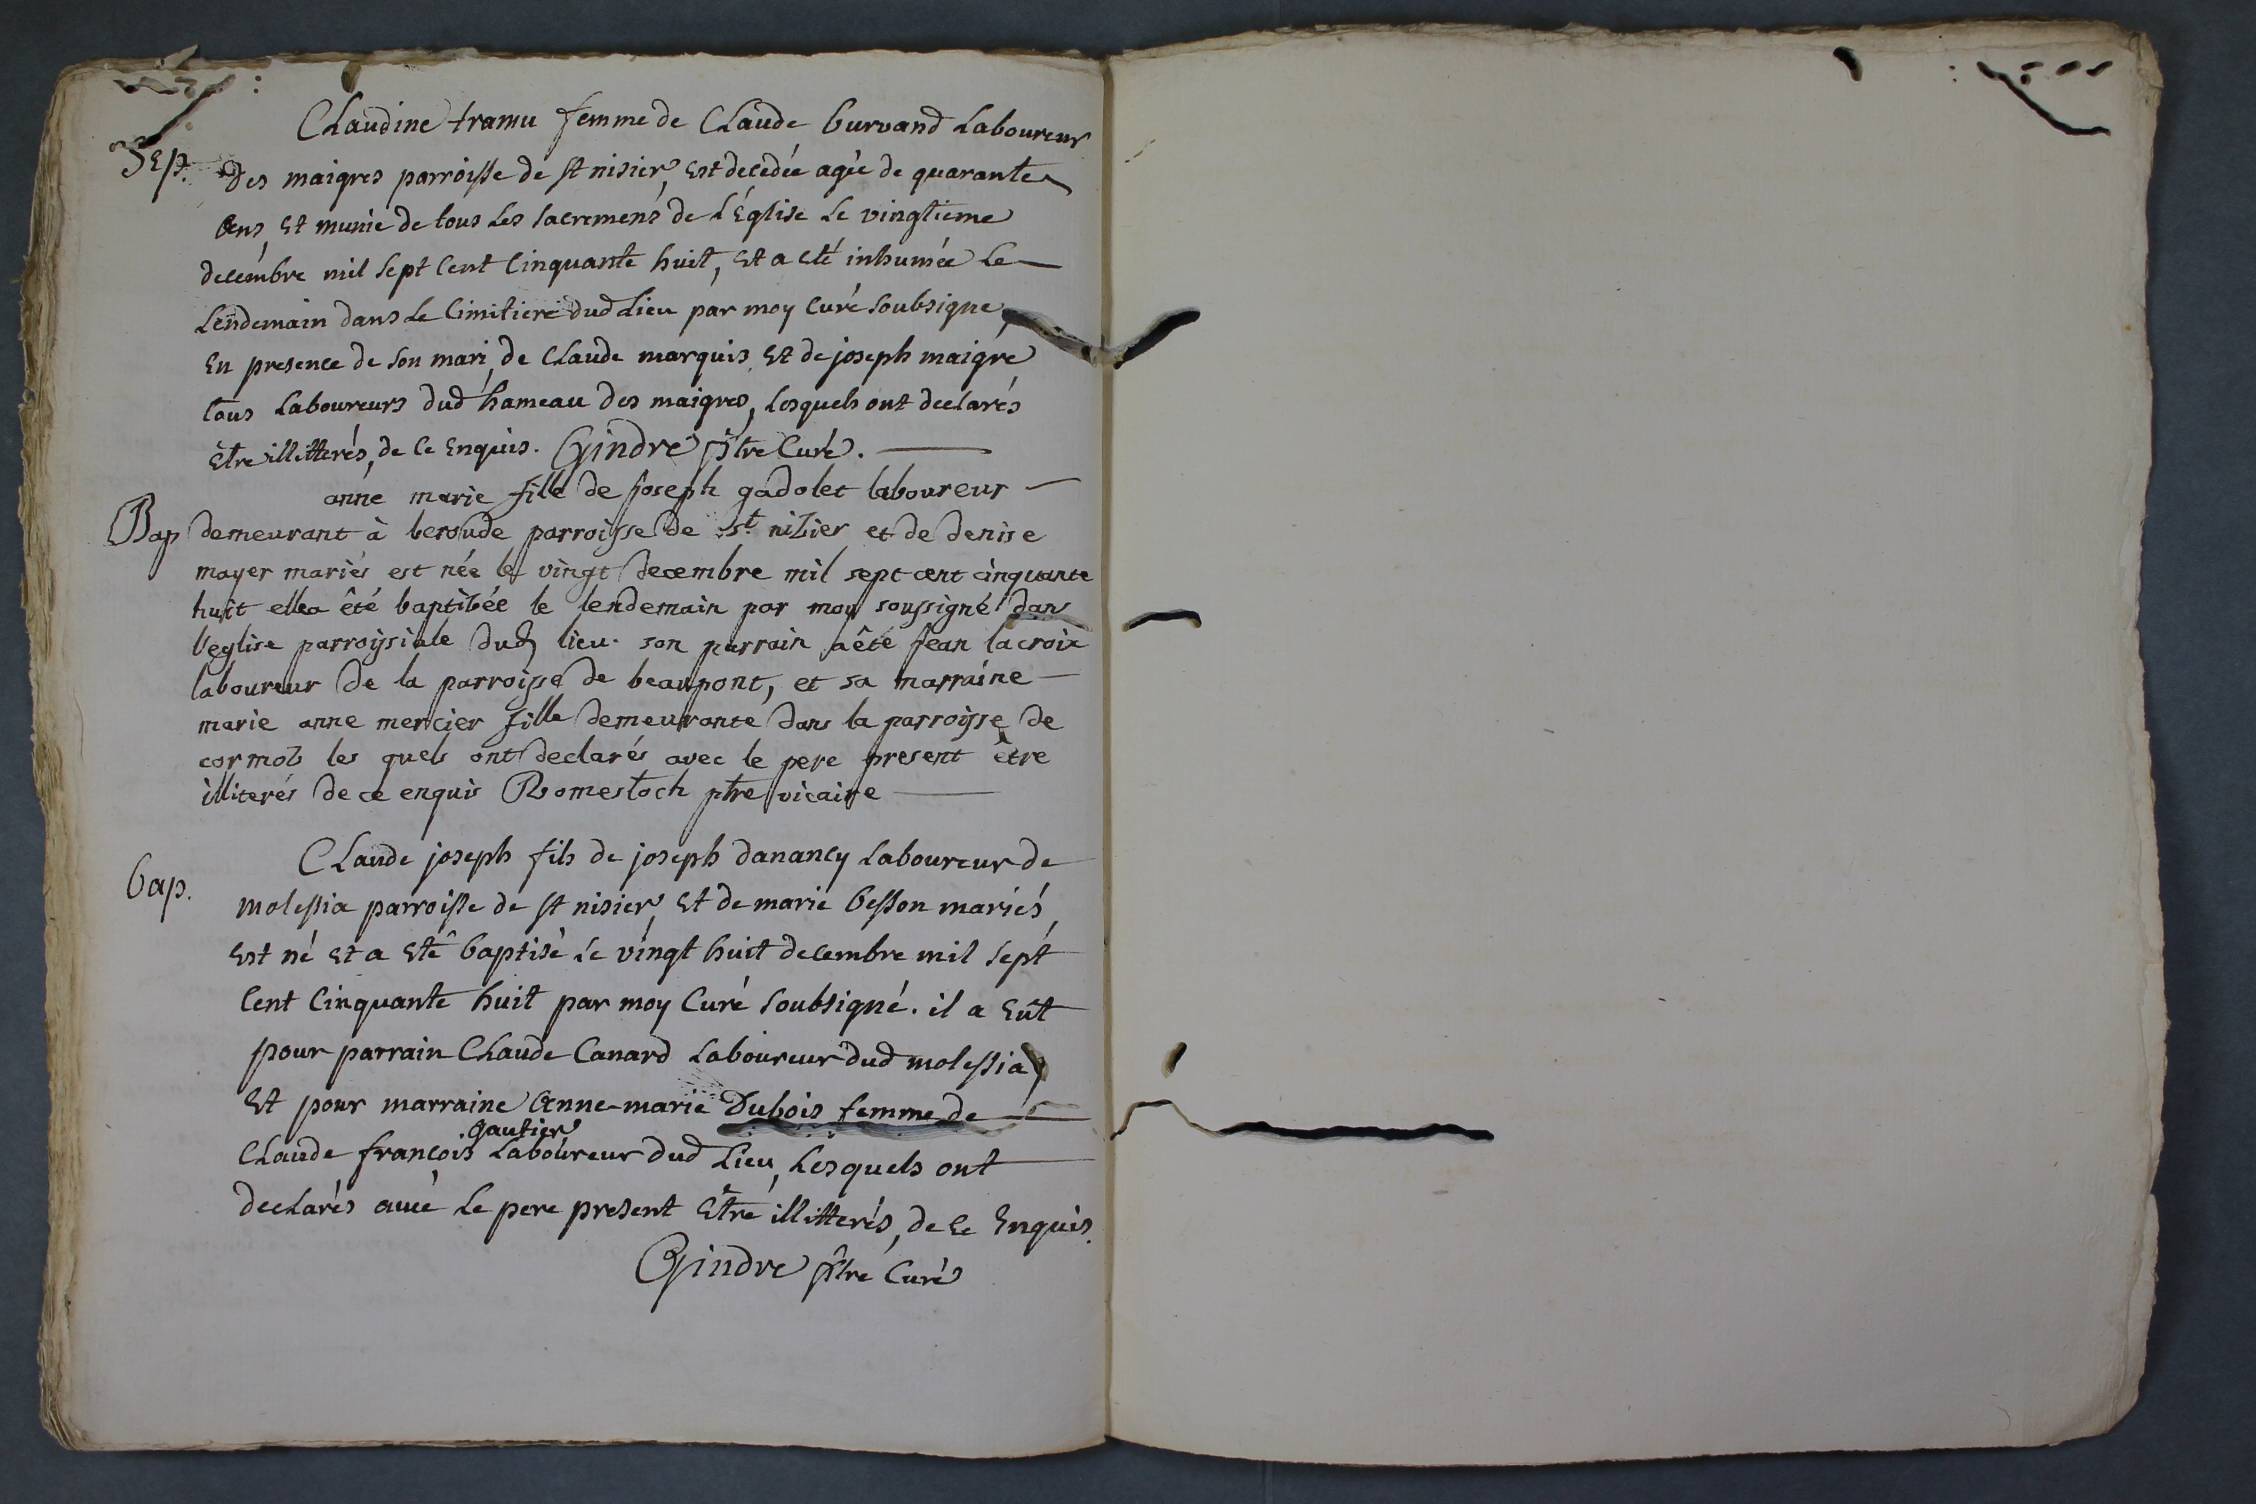 Claudine tramu femme de Claude burvand Laboureur
Sep. Des maigres parroisse de st nisier, est decedée agée de quarante
Ans, et munie de tous les sacremens de L'Église Le vingtieme
decembre mil sept cent cinquante huit, et a eté inhumée Le
Lendemain dans Le Cimitiere dud Lieu par moy Curé soubsigne,
En presence de son mari, de Claude marquis, et de joseph maigre
tous Laboureurs dud hameau des maigres, Lesquels ont declarés
Etre illitterés, de ce Enquis. Gindre ptre Curé.
anne marie fille de joseph gadolet laboureur
Bap demeurant à beroude parroisse de st. nizier et de denise
mayer mariés est née le vingt decembre mil sept cent cinquante
huit ella été baptisée le lendemain par moy soussigné dans
l'eglise parroissiale dud lieu. son parrain a été jean lacroix
laboureur de la parroisse de beaupont, et sa marraine
marie anne mercier fille demeurante dans la parroisse de
cormoz les quels ont declarés avec le pere present être
illiterés de ce enquis Romestoch ptre vicaire
Claude joseph fils de joseph danancy Laboureur de
bap. molessia parroisse de st nisier, et de marie besson mariés,
est né et a eté baptisé Le vingt huit decembre mil sept
Cent Cinquante huit par moy Curé soubsigné. il a Eût
pour parrain Claude Canard Laboureur dud molessia,
et pour marraine Anne-marie Dubois femme de
gautier
Claude françois Laboureur dud Lieu, Lesquels ont
declarés avec Le pere present Etre illitterés, de ce Enquis.
Gindre ptre Curé